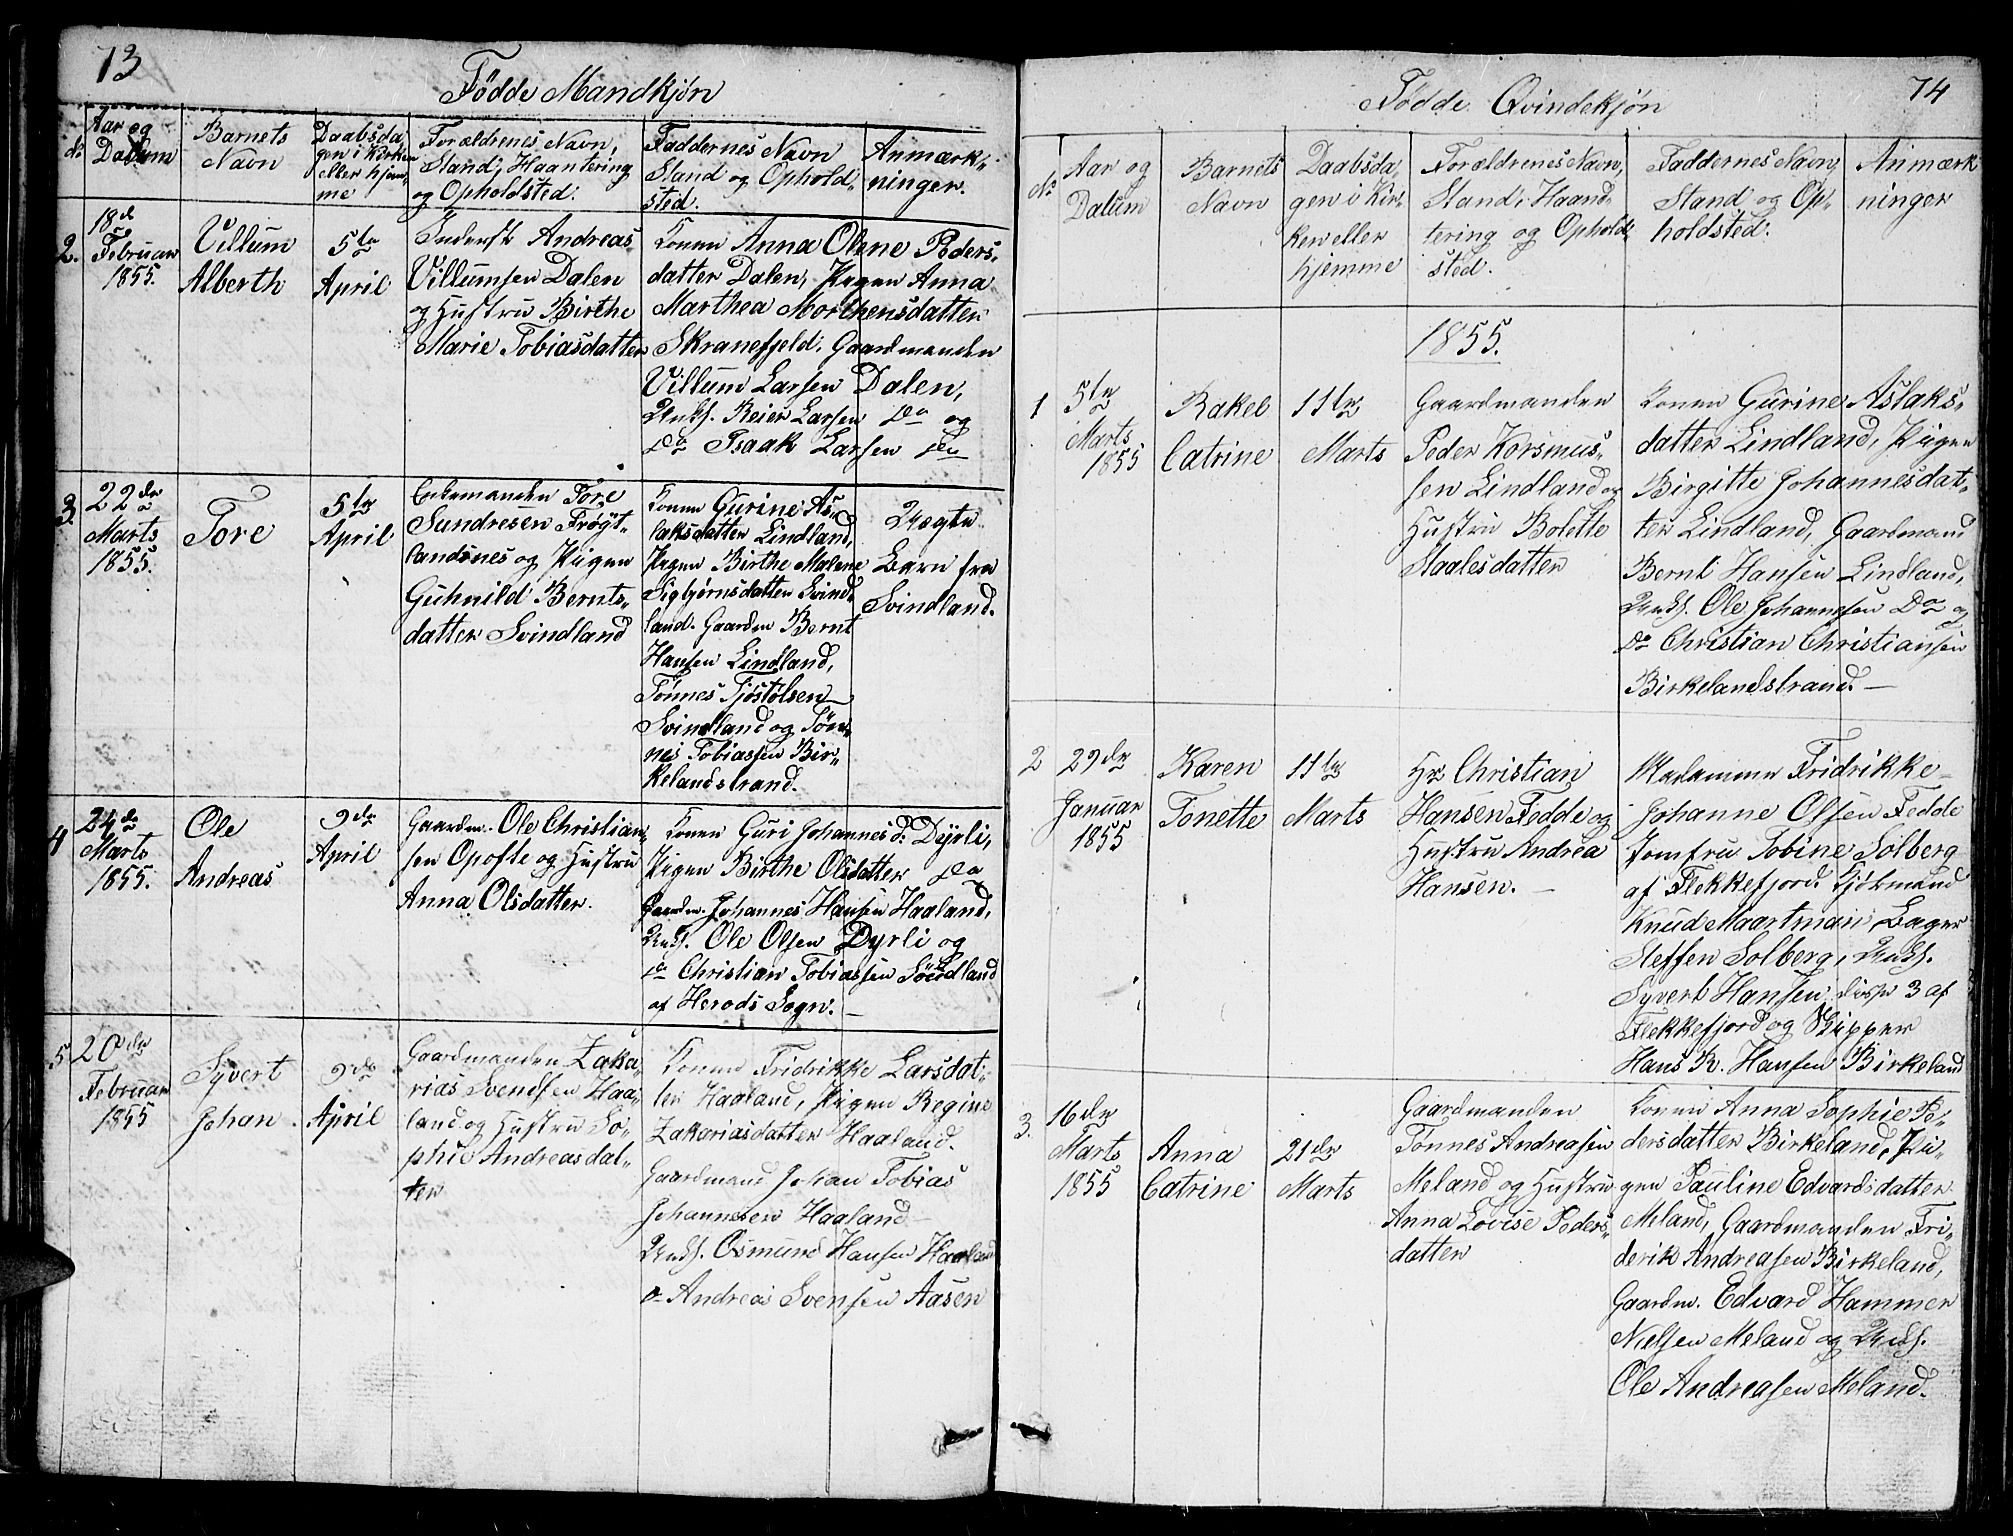 73
Fødde Mandkjøn
No
Aar og
Datum
Barnets
Navn
Daabsda-
gen i Kirken
eller hjem-
me
Forældrenes Navn,
Stand, Haantering
og Opholdsted.
Faddernes Navn
Stand og Ophold-
sted.
Anmærk-
ninger.
2.
18de
Februar
1855.
Villum
Alberth
5te
April
Inderst Andreas
Villumsen Dalen
og Hustru Birthe
Marie Tobiasdatter
Konen Anna Olene Peders-
datter Dalen, Pigen Anna
Marthea Morthensdatter
Skranefjeld. Gaardmanden
Villum Larsen Dalen,
Unks. Reier Larsen Do og
Do Isaak Larsen Do
3.
22de
Marts
1855.
Tore
5te
April
Enkemanden Tore
Sundresen Frøyt-
landsnes og Pigen
Guhnild Bernts-
datter Svindland
Konen Gurine As-
laksdatter Lindland,
Pigen Birthe Malene
Sigbjørnsdatter Svind-
land. Gaardm Bernt
Hansen Lindland,
Tønnes Tjøstolsen
Svindland og Tøn-
nes Tobiassen Bir-
kelandstrand.
Uægte
Barn fra
Svindland.
4
24de
Marts
1855.
Ole
Andreas
9de
April
Gaardm. Ole Christian-
sen Opofte og Hustru
Anna Olsdatter.
Konen Guri Johannesd. Dyrli,
Pigen Birthe Olsdatter Do
Gaardm. Johannes Hansen Haaland,
Unks. Ole Olsen Dyrli og
Do Christian Tobiassen
af Herods Sogn.
5
20de
Februar
1855
Syvert
Johan.
9de
April
Gaardmanden Zaka-
rias Svendsen Haa-
land og Hustru So-
phie Andreasdat-
ter
Konen Fridrikke Larsdat-
ter Haaland, Pigen Regine
Zakariasdatter Haaland.
Gaardmand Johan Tobias
Johannesen Haaland
Unks. Osmund Hansen Haaland
Do Andreas Svensen Aasen
74
Fødde Qvindekjøn
No
Aar og
Datum
Barnets
Navn
Daabsda-
gen i Kir-
ken eller
hjemme
Forældrenes Navn,
Stand, Haand-
tering og Ophold-
sted.
Faddernes Navn,
Stand og Op-
holdsted.
Anmærk
ninger
1855.
1
5te
Marts
1855
Rakel
Catrine
11te
Marts
Gaardmanden
Peder Korsmus-
sen Lindland og
Hustru Bolette
Staalesdatter
Konen Gurine Aslaks-
datter Lindland, Pigen
Birgitte Johannesdat-
ter Lindland, Gaardmand
Bernt Hansen Lindland,
Unks. Ole Johannesen Do og
Do Christian Christiansen
Birkelandstrand.
2
29de
Januar
1855
Karen
Tonette
11te
Marts
Hr Christian
Hansen Fedde og
Hustru Andrea
Hansen.
Madamme Fridrikke
Johanne Olsen Fedde
Jomfru Tobine Solberg
af Flekkefjord. Sjøkmand
Knud Maartman, Bager
Steffen Solberg, Unks.
Syvert Hansen, disse 3 af
Flekkefjord og Skipper
Hans R. Hansen Birkeland
3.
16de
Marts
1855
Anna
Catrine
21de
Marts
Gaardmanden
Tønnes Andreasen
Meland og Hustru
Anna Lovise Peders-
datter
Konen Anna Sophie Pe-
dersdatter Birkeland, Pi-
gen Pauline Edvardsdatter
Meland, Gaardmanden Fri-
derik Andreasen Birkeland,
Gaardm. Edvard Hammer
Nielsen Meland og Unks.
Ole Andreasen Meland.